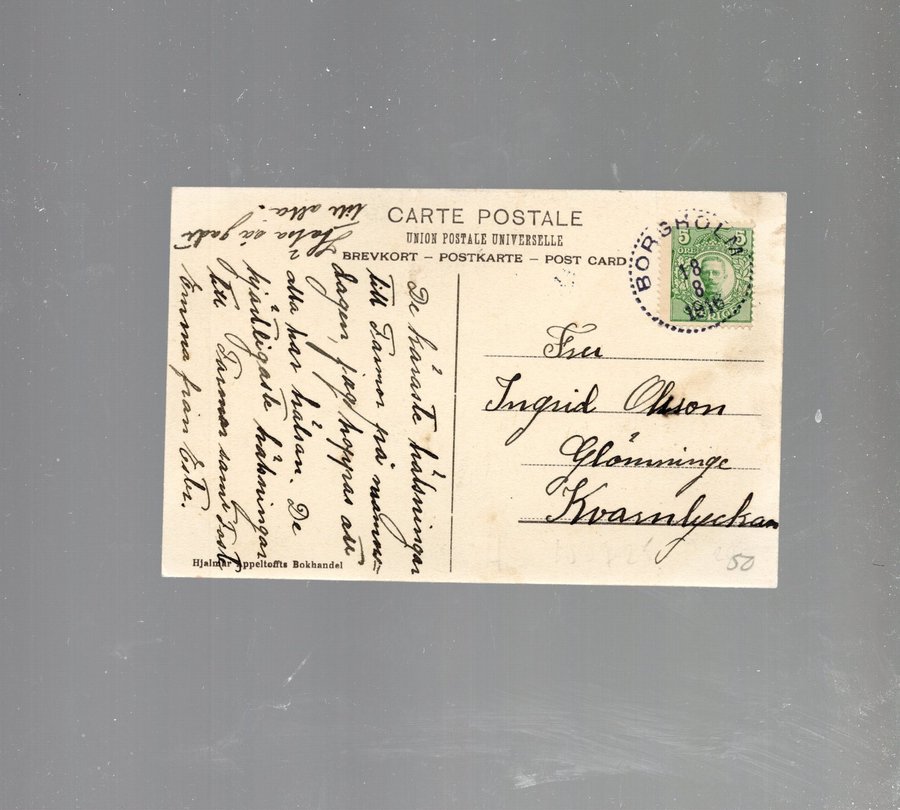 CARTE POSTALE
UNION POSTALE UNIVERSELLE
BREVKORT – POSTKARTE – POST CARD
BORGHOLM
18
8
1916
5 5
ÖRE
Fru
Ingrid Olsson
Glömminge
Kvarnlyckan
50
De käraste hälsningar
till Farmor på namns-
dagen, jag hoppas att
alla har hälsan. De
hjärtligaste hälsningar
till Farmor samt Fast
Emma från Ester.
Hälsa så godt
till alla.
Hjalmar Appeltoffts Bokhandel